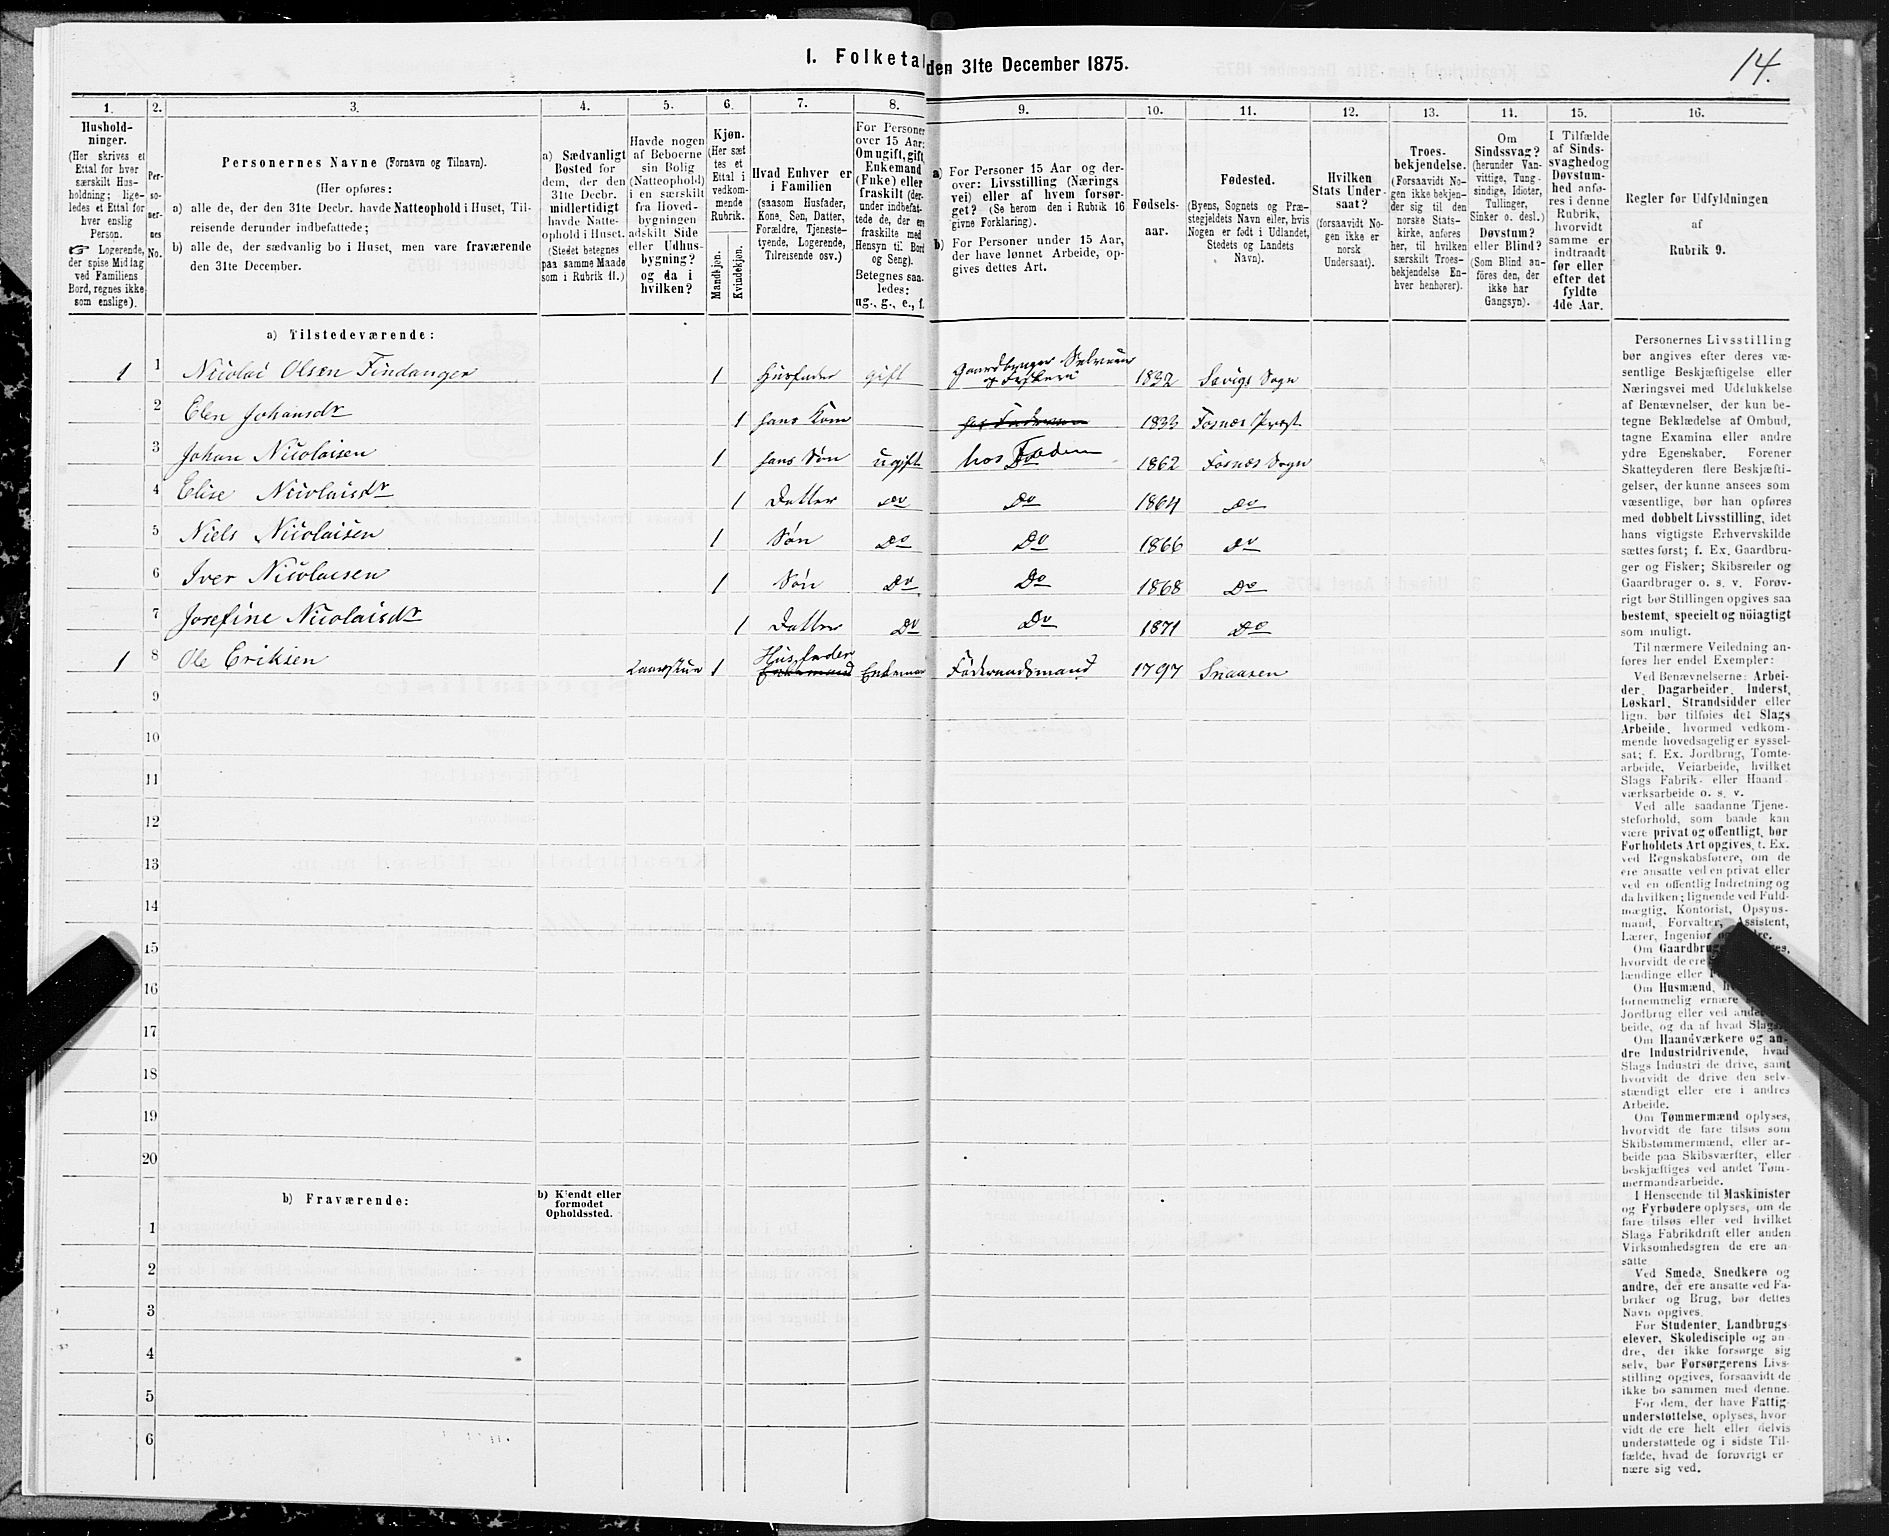 I. Folketal den 31te December 1875.
14.
1.
Hushold-
ninger.
(Her skrives et
Ettal for hver
særskilt Hus-
holdning; lige-
ledes et Ettal for
hver enslig
Person.
☞ Logerende,
der spise Middag
ved Familiens
Bord, regnes ikke
som enslige).
2.
Per-
so-
ner-
nes
No.
3.
Personernes Navne (Fornavn og Tilnavn).
(Her opføres:
a) alle de, der den 31te Decbr. havde Natteophold i Huset, Til-
reisende derunder indbefattede;
b) alle de, der sædvanlig bo i Huset, men vare fraværende
den 31te December.
4.
a) Sædvanligt
Bosted for
dem, der den
31te Decbr.
millertidigt
havde Natte-
ophold i Huset.
(Stedet betegnes
paa samme Maade
som i Rubrik 11.)
5.
Havde nogen
af Beboerne
sin Bolig
(Natteophold)
i en særskilt
fra Hoved-
bygningen
adskilt Side
eller Udhus-
bygning?
og da i
hvilken?
6.
Kjøn.
(Her sæt
tes et
Ettal i
vedkom-
mende
Rubrik.
Mandkjøn.
Kvindekjøn.
7.
Hvad Enhver er
i Familien
(saasom Husfader,
Kone, Søn, Datter,
Forældre, Tjeneste-
tyende, Logerende,
Tilreisende osv.)
8.
For Personer
over 15 Aar:
Om ugift, gift,
Enkemand
(Enke) eller
fraskilt (der-
under indbefat-
tede de, der ere
fraskilte med
Hensyn til Bord
og Seng).
Betegnes saa-
ledes:
ug., g., e., f.
9.
a) For Personer 15 Aar og der-
over: Livsstilling (Nærings
vei) eller af hvem forsør-
get? (Se herom den i Rubrik 16
givne Forklaring).
b) For Personer under 15 Aar,
der have lønnet Arbeide, op-
gives dettes Art.
10.
Fødsels-
aar.
11.
Fødested.
(Byens, Sognets og Præ-
stegjeldets Navn eller, hvis
Nogen er født i Udlandet,
Stedets og Landets
Navn).
12.
Hvilken
Stats Under-
saat?
(forsaavidt No-
gen ikke er
norsk
Undersaat).
13.
Troes-
bekjendelse.
(Forsaavidt No-
gen ikke bekjen-
der sig til den
norske Stats-
kirke, anføres
her, til hvilken
særskilt Troes-
bekjendelse En-
hver henhører).
14.
Om
Sindssvag?
(herunder Van-
vittige, Tung-
sindige, Idioter,
Tullinger,
Sinker o. desl.)
Døvstum?
eller Blind?
(Som Blind an-
føres den, der
ikke har
Gangsyn).
15.
I Tilfælde
af Sinds-
svaghed og
Døvstum-
hed anfø-
res i denne
Rubrik,
hvorvidt
samme er
indtraadt
før eller
efter det
fyldte
4de Aar.
16.
Regler for Udfyldningen
af
Rubrik 9.
a) Tilstedeværende:
1 1 Nicolai Olsen Findanger 1 Husfader gift Gaardbruger Selveier og Fiskeri 1832 Sogn
2 Elen Johansdr 1 hans Kone 1833 Fosnæs Præst
3 Johan Nicolaisen 1 hans Søn ugift hos Faderen 1862 Fosnæs Sogn
4 Elise Nicolaisdr 1 Datter Do Do 1864 Do
5 Niels Nicolaisen 1 Søn Do Do 1866 Do
6 Iver Nicolaisen 1 Søn Do Do 1868 Do
7 Josefine Nicolaisdr 1 Datter Do Do 1871 Do
1 8 Ole Eriksen 1 Husfader Enkemand Føderaadsmand 1797 Snaasen
9
10
11
12
13
14
15
16
17
18
19
20
b) Fraværende:
b) Kjendt eller
formodet
Opholdssted.
1
2
3
4
5
6
Personernes Livsstilling
bør angives efter deres væ-
sentlige Beskjæftigelse eller
Næringsvei med Udelukkelse
af Benævnelser, der kun be-
tegne Beklædelse af Ombud,
tagne Examina eller andre
ydre Egenskaber. Forener
Skatteyderen flere Beskjæfti-
gelser, der kunne ansees som
væsentlige, bør han opføres
med dobbelt Livsstilling, idet
hans vigtigste Erhvervskilde
sættes først; f. Ex. Gaardbru-
ger og Fisker; Skibsreder og
Gaardbruger o. s. v. Forøv-
rigt bør Stillingen opgives saa
bestemt, specielt og nøiagtigt
som muligt.
Til nærmere Veiledning an-
føres her endel Exempler:
Ved Benævnelserne: Arbei-
der, Dagarbeider, Inderst,
Løskarl, Strandsidder eller
lign. bør tilføies det Slags
Arbeide, hvormed vedkom-
mende hovedsagelig er syssel-
sat; f. Ex. Jordbrug, Tomte-
arbeide, Veiarbeide, hvilket
Slags Fabrik- eller Haand-
værksarbeide o. s. v.
Ved alle saadanne Tjene-
steforhold, som baade kan
være privat og offentligt, bør
Forholdets Art opgives, f. Ex.
ved Regnskabsførere, om de
ere ansatte ved en privat eller
ved en offentlig Indretning og
da hvilken; lignende ved Fuld-
mægtig, Kontorist, Opsyns-
mand, Forvalter, Assistent,
Lærer, Ingeniør
Om
hvorvidt de ere
lændinge eller
Om Husmænd,
fornemmelig ernære
Jordbrug eller ved
beide, og da af hvad Slags.
Om Haandværkere og an-
dre Industridrivende, hvad
Slags Industri de drive, samt
hvorvidt de drive den selv-
stændigt eller ere i andres
Arbeide.
Om Tømmermænd oplyses,
hvorvidt de fare tilsøs som
Skibstømmermænd, eller ar-
beide paa Skibsværfter, eller
beskjæftiges ved andet Tøm-
mermandsarbeide.
I Henseende til Maskinister
og Fyrbødere oplyses, om de
fare tilsøs eller ved hvilket
Slags Fabrikdrift eller anden
Virksomhedsgren de ere an-
satte
Ved Smede, Snedkere og
andre, der ere ansatte ved Fa-
briker og Brug, bør dettes
Navn opgives.
For Studenter, Landbrugs-
elever, Skoledisciple og an-
dre, der ikke forsørge sig
selv, bør Forsørgerens Livs-
stilling opgives, forsaavidt de
ikke bo sammen med denne.
For dem, der have Fattig-
understøttelse, oplyses, hvor-
vidt de ere helt eller delvis
understøttede og i sidste Til-
fælde, hvad de forøvrigt er-
nære sig ved.